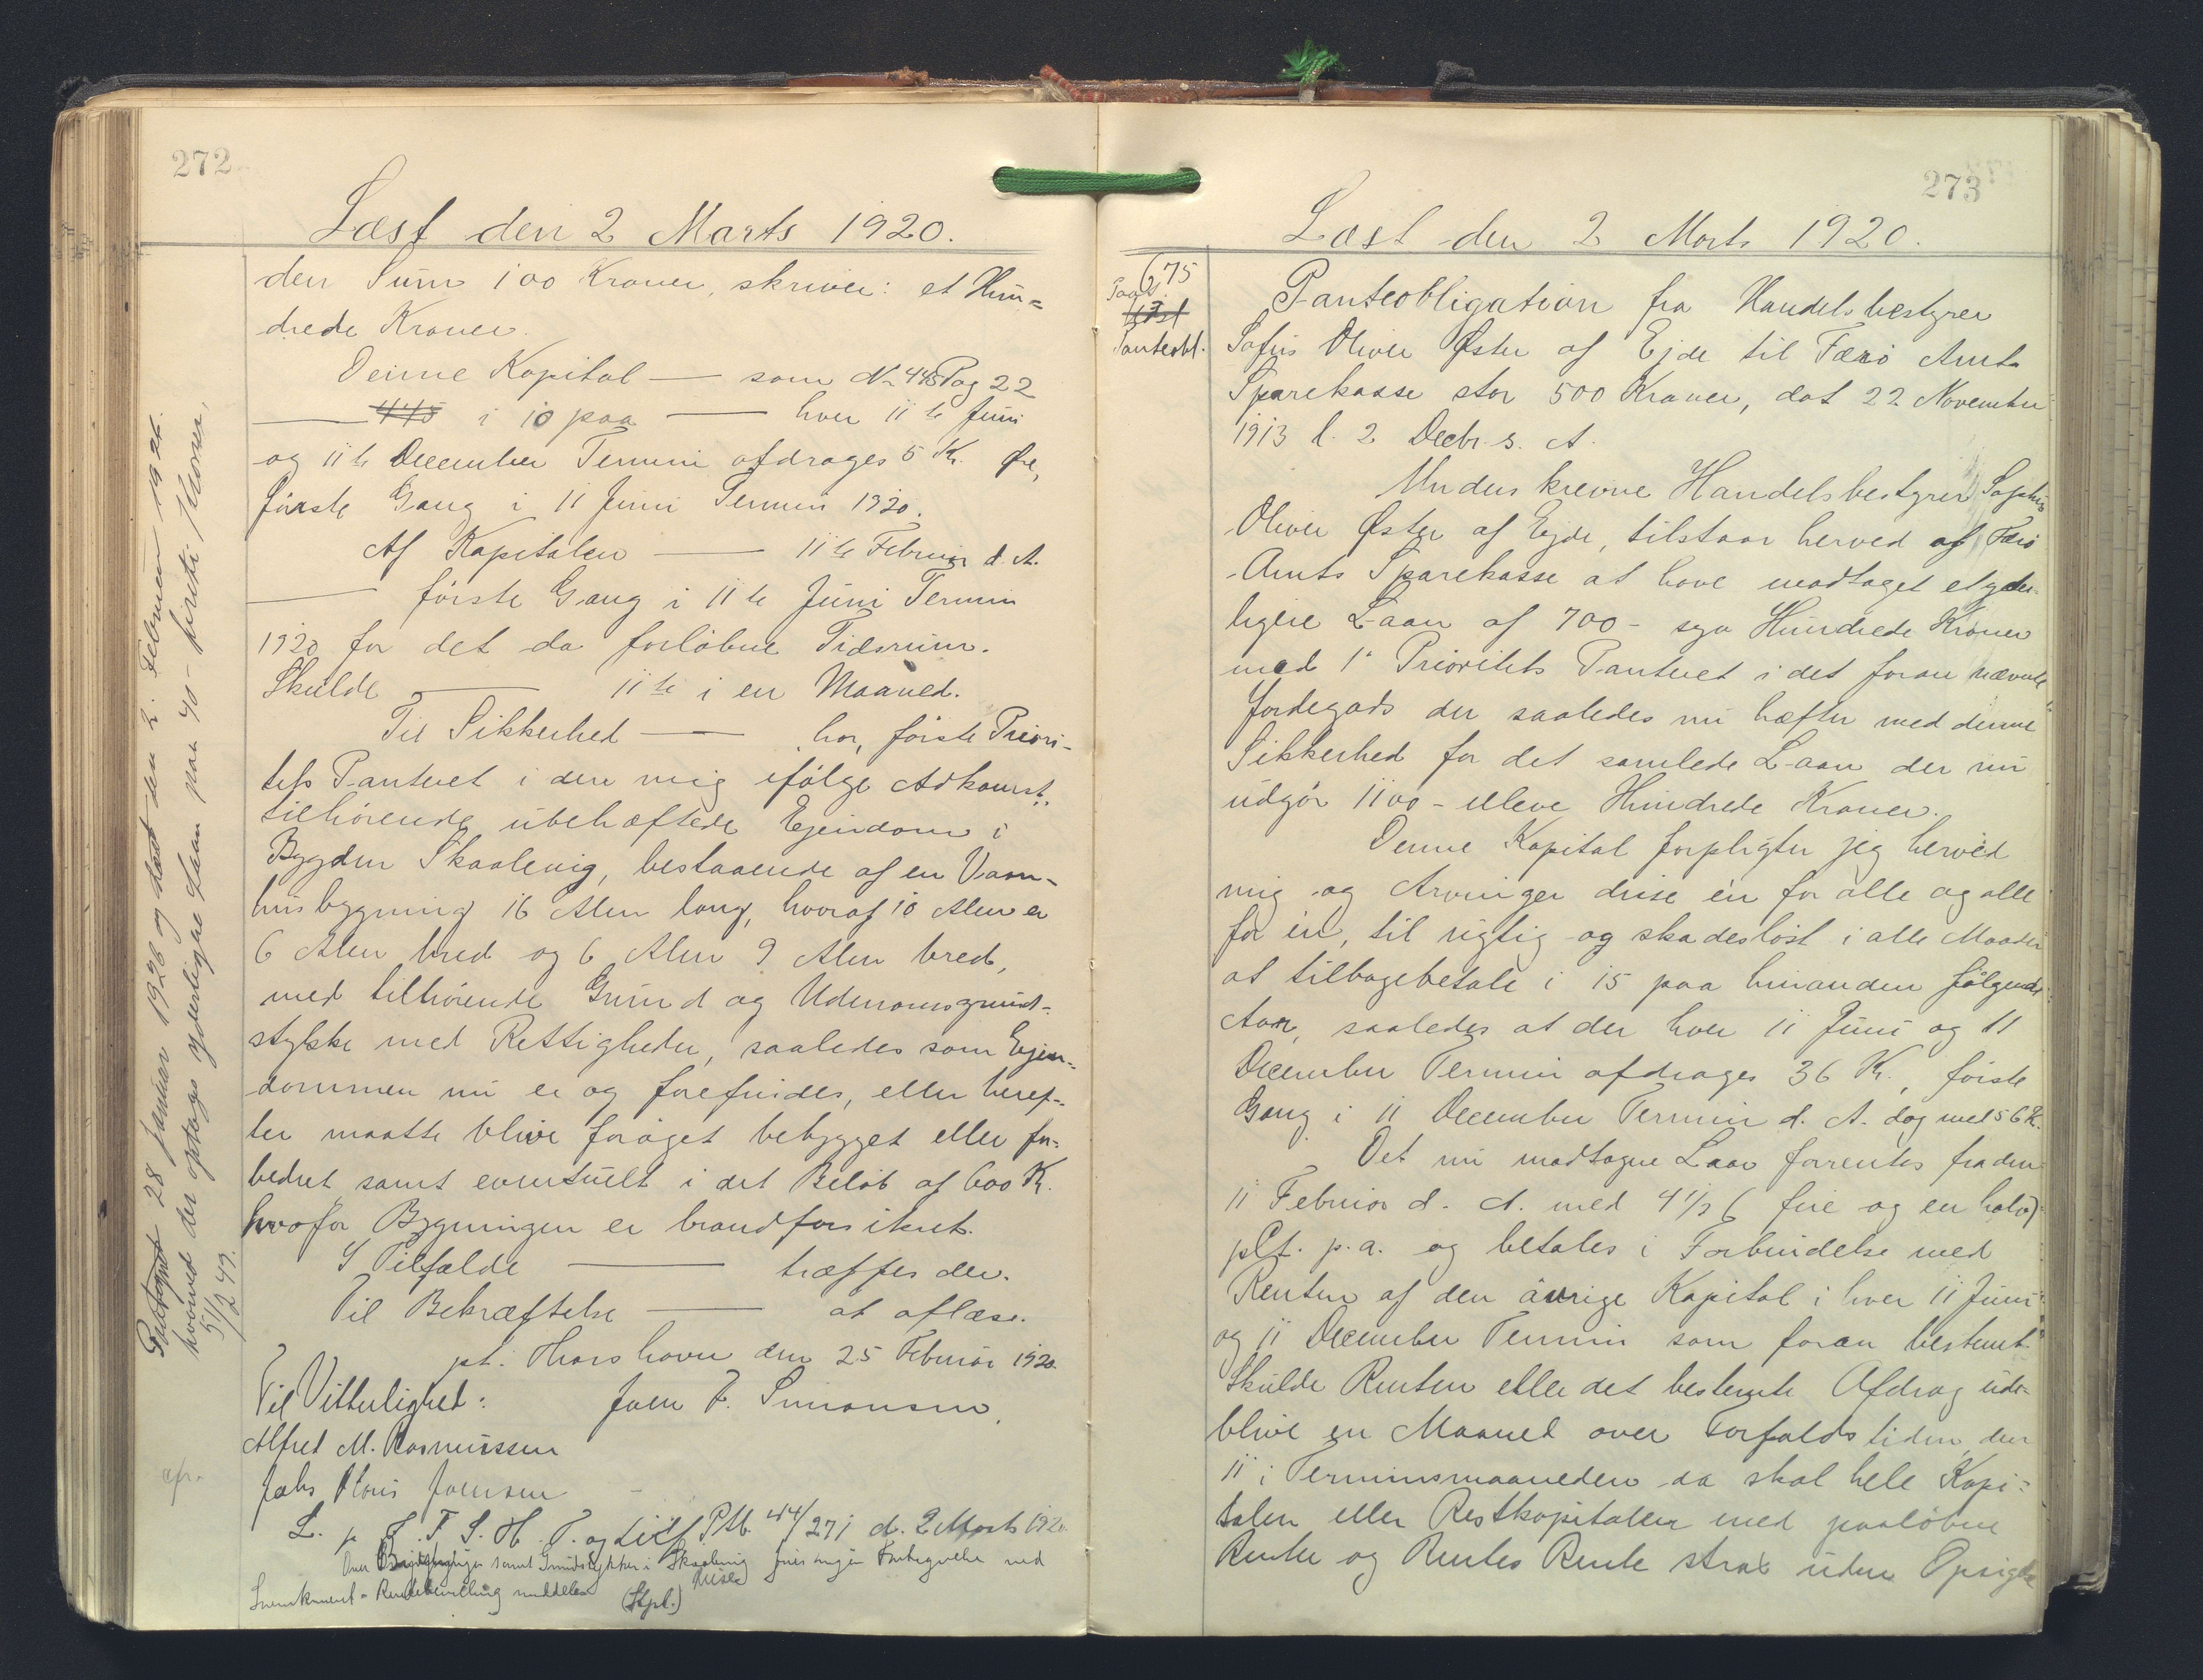 272
Læst den 2 Marts 1920.
den Sum 100 Kroner, skriver: et Hun=
drede Kroner.
Denne Kapital — som No 445 Pag 22
— 445 i 10 paa — hver 11te Juni
og 11te December Termin afdrages 5 Kr. Øre,
første Gang i 11 Juni Termin 1920.
Af Kapitalen — 11te Februar d. A.
— første Gang i 11te Juni Termin
1920 for det da forløbne Tidsrum.
Skulde — 11te i en Maaned.
Til Sikkerhed — har, første Priori-
tets Panteret i den mig ifølge Adkomst
tilhørende ubehæftede Ejendom i
Bygden Skaalevig, bestaaende af en Vaan-
husbygning 16 Alen lang, hvoraf 10 Alen er
6 Alen bred og 6 Alen 9 Alen bred,
med tilhørende Grund og Udenomsgrund-
stykke med Rettigheder, saaledes som Ejen-
dommen nu er og forefindes, eller heref-
ter maatte blive forøget bebygget eller for-
bedret samt eventuelt i det Beløb af 600 Kr.
hvorfor Bygningen er brandforsikret.
I Tilfælde — træffes der.
Til Bekræftelse — at aflæse.
pt. Thorshavn den 25 Februar 1920.
Til Vitterlighed: Joen F. Simonsen,
Alfred M. Rasmussen
Jahs Joensen
L. p. F. T. S. H. T. og Lidf. P.M. 444/271 d. 2 Marts 1920.
samt Grundstykker i Skaalevig
meddeles (Stpl.)
28 Januar 1926 og læst den 2. Februar 1926.
hvorved der optages yderligere Laan paa 40 - firreti Kroner,
5/2 47.
273
Læst den 2 Marts 1920.
675
Pantobl.
Panteobligation fra Handelsbestyrer
Sofus Oliver Øster af Ejde til Færø Amts
Sparekasse stor 500 Kroner, dat 22 November
1913 l. 2 Decbr. s. A.
Underskrevne Handelsbestyrer Sophus
Oliver Øster af Ejde, tilstaar herved af Færø
Amts Sparekasse at have modtaget et yder-
ligere Laan af 700 - syv Hundrede Kroner
mod 1' Prioritets Panteret i det foran nævnte
Jordegods der saaledes nu hæfter med denne
Sikkerhed for det samlede Laan der nu
udgør 1100 - elleve Hundrede Kroner.
Denne Kapital forpligter jeg herved
mig og Arvinger disse én for alle og alle
for én, til rigtig og skadesløst i alle Maader
at tilbagebetale i 15 paa hinanden følgende
Aar, saaledes at der hver 11 Juni og 11
December Termin afdrages 36 Kr., første
Gang i 11 December Termin d. A. dog med 56 Kr.
Det nu modtagne Laan forrentes fra den
11 Februar d. A. med 4 1/2 (fire og en halv)
pCt. p.a. og betales i Forbindelse med
Renten af den øvrige Kapital i hver 11 Juni
og 11 December Termin som foran bestemt.
Skulde Renten eller det bestemte Afdrag ude-
blive en Maaned over Forfaldstiden, den
11 i Terminsmaaneden da skal hele Kapi-
talen eller Restkapitalen med paaløbne
Rente og Rentes Rente strax uden Opsigelse